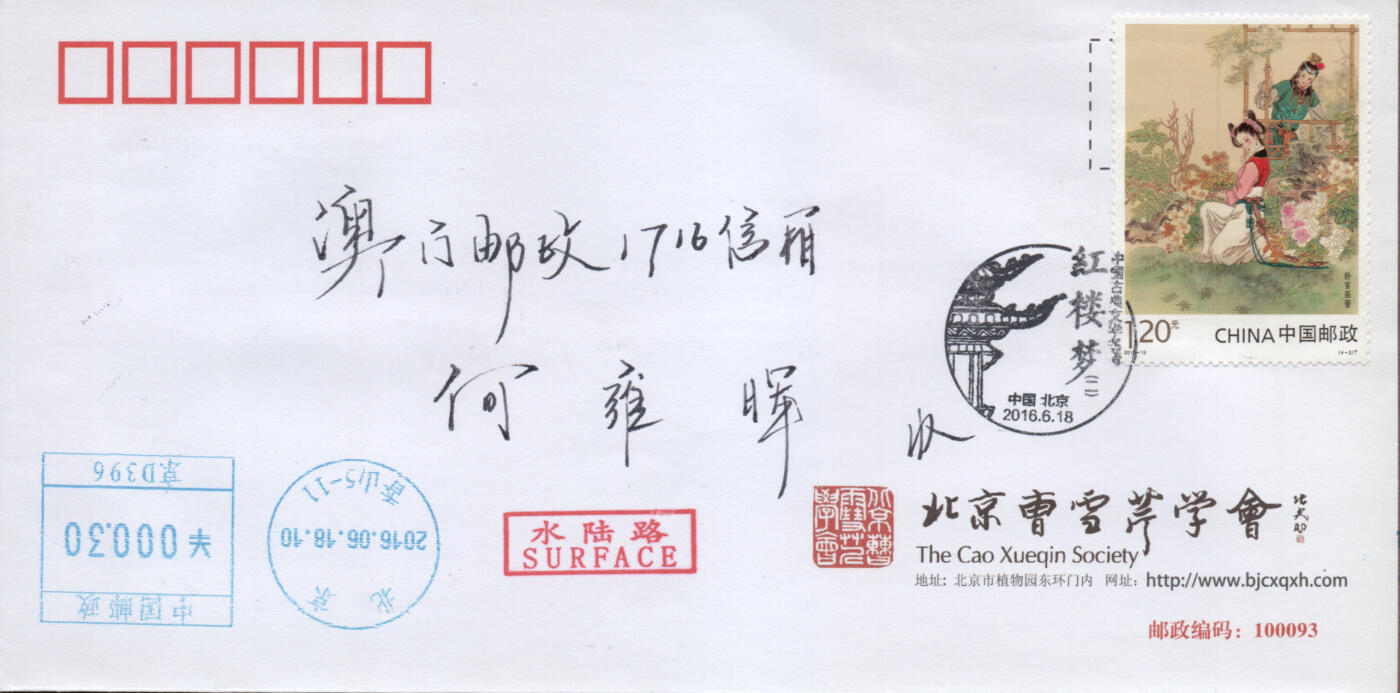 澳门邮政1716信箱
何雍晖 收
龄官画蔷
1.20元
CHINA 中国邮政
中国古典文学名著
红楼梦(二)
中国 北京
2016.6.18
京D396
¥000.30
中国邮政
香山/5-11
2016.06.18.10
北京
水陆路
SURFACE
北京曹雪芹学會
The Cao Xueqin Society
地址: 北京市植物园东环门内 网址: http://www.bjcxqxh.com
邮政编码: 100093